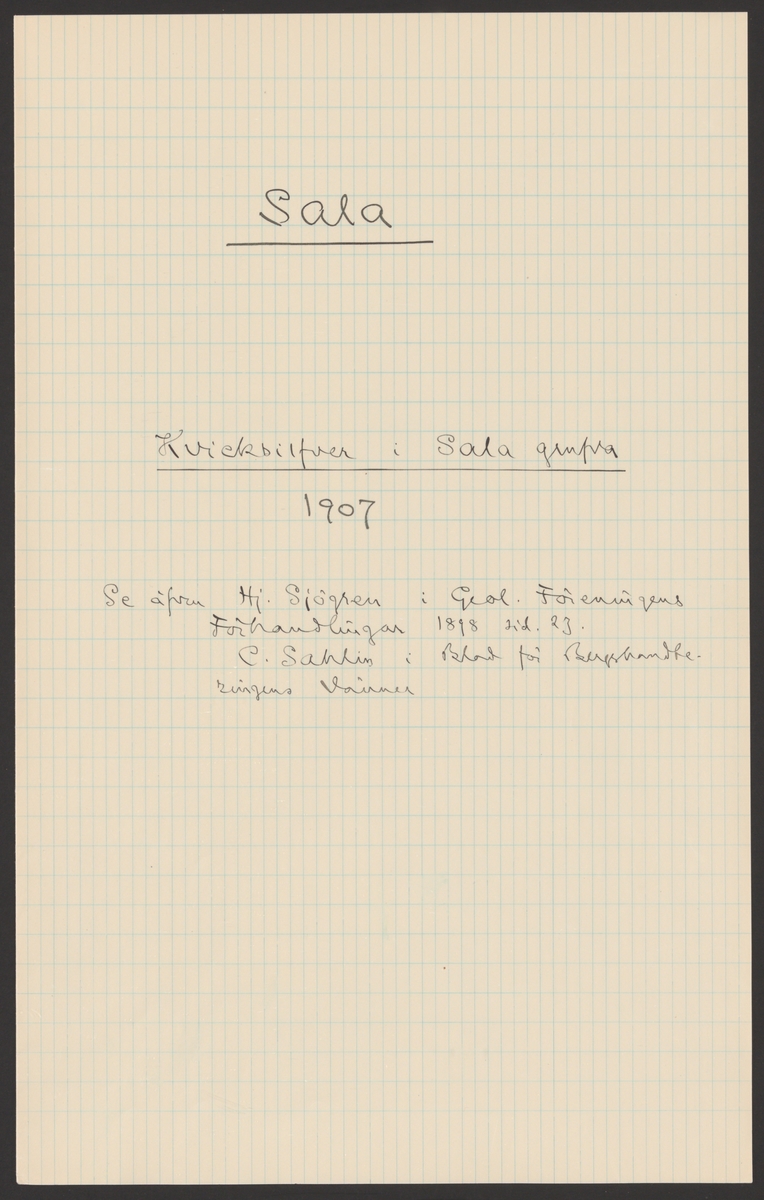 Sala
Kvicksilfver i Sala grufva
1907
Se äfven Hj. Sjögren i Geol. Föreningens
Förhandlingar 1898 sid. 23.
C. Sahlin i Blad för Bergshandte-
ringens Vänner